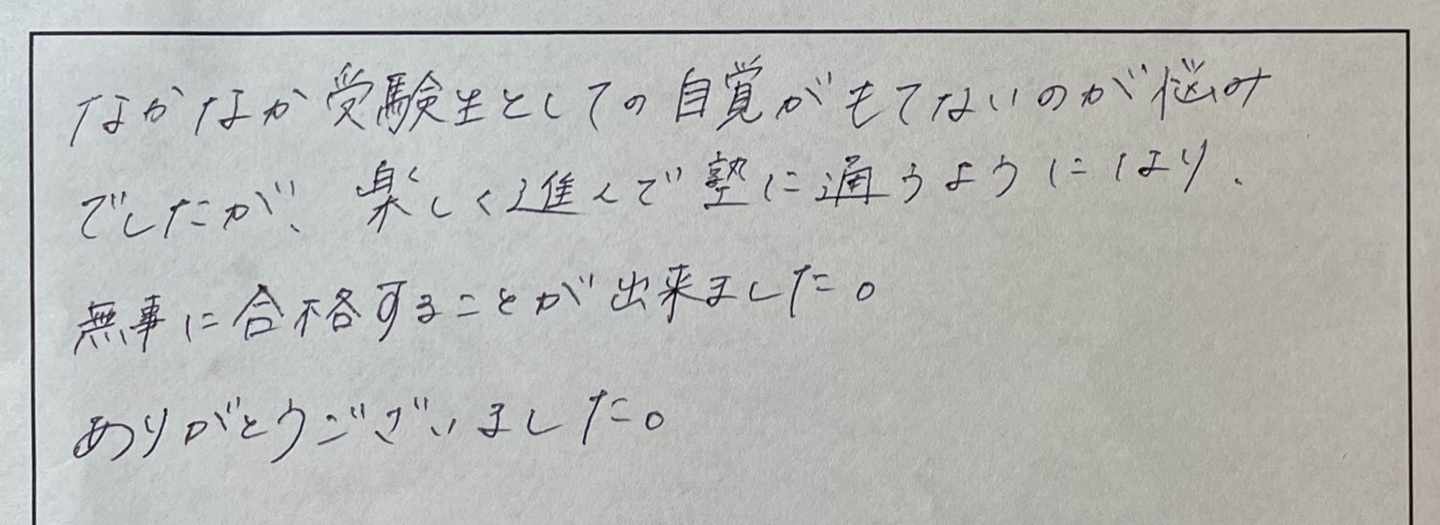 なかなか受験生としての自覚がもてないのが悩み
でしたが、楽しく進んで塾に通うようになり、
無事に合格することが出来ました。
ありがとうございました。